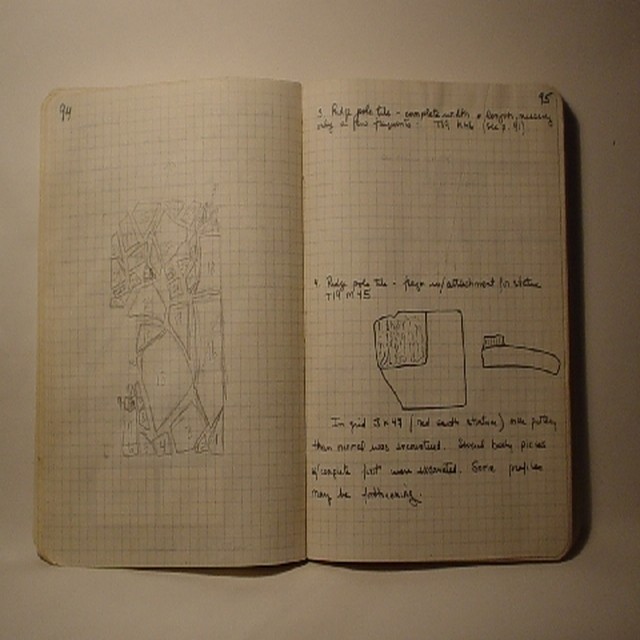 94
95
3. Ridge pole tile - complete width & length, missing
only a few fragments. T19 K46 (see p. 91)
4. Ridge pole tile - fragm w/attachment for statue
T19 M45
13
In grid J n 47 (red earth stratum) more pottery
than normal was encountered. Several body pieces
w/complete foot were excavated. Some profiles
may be forthcoming.